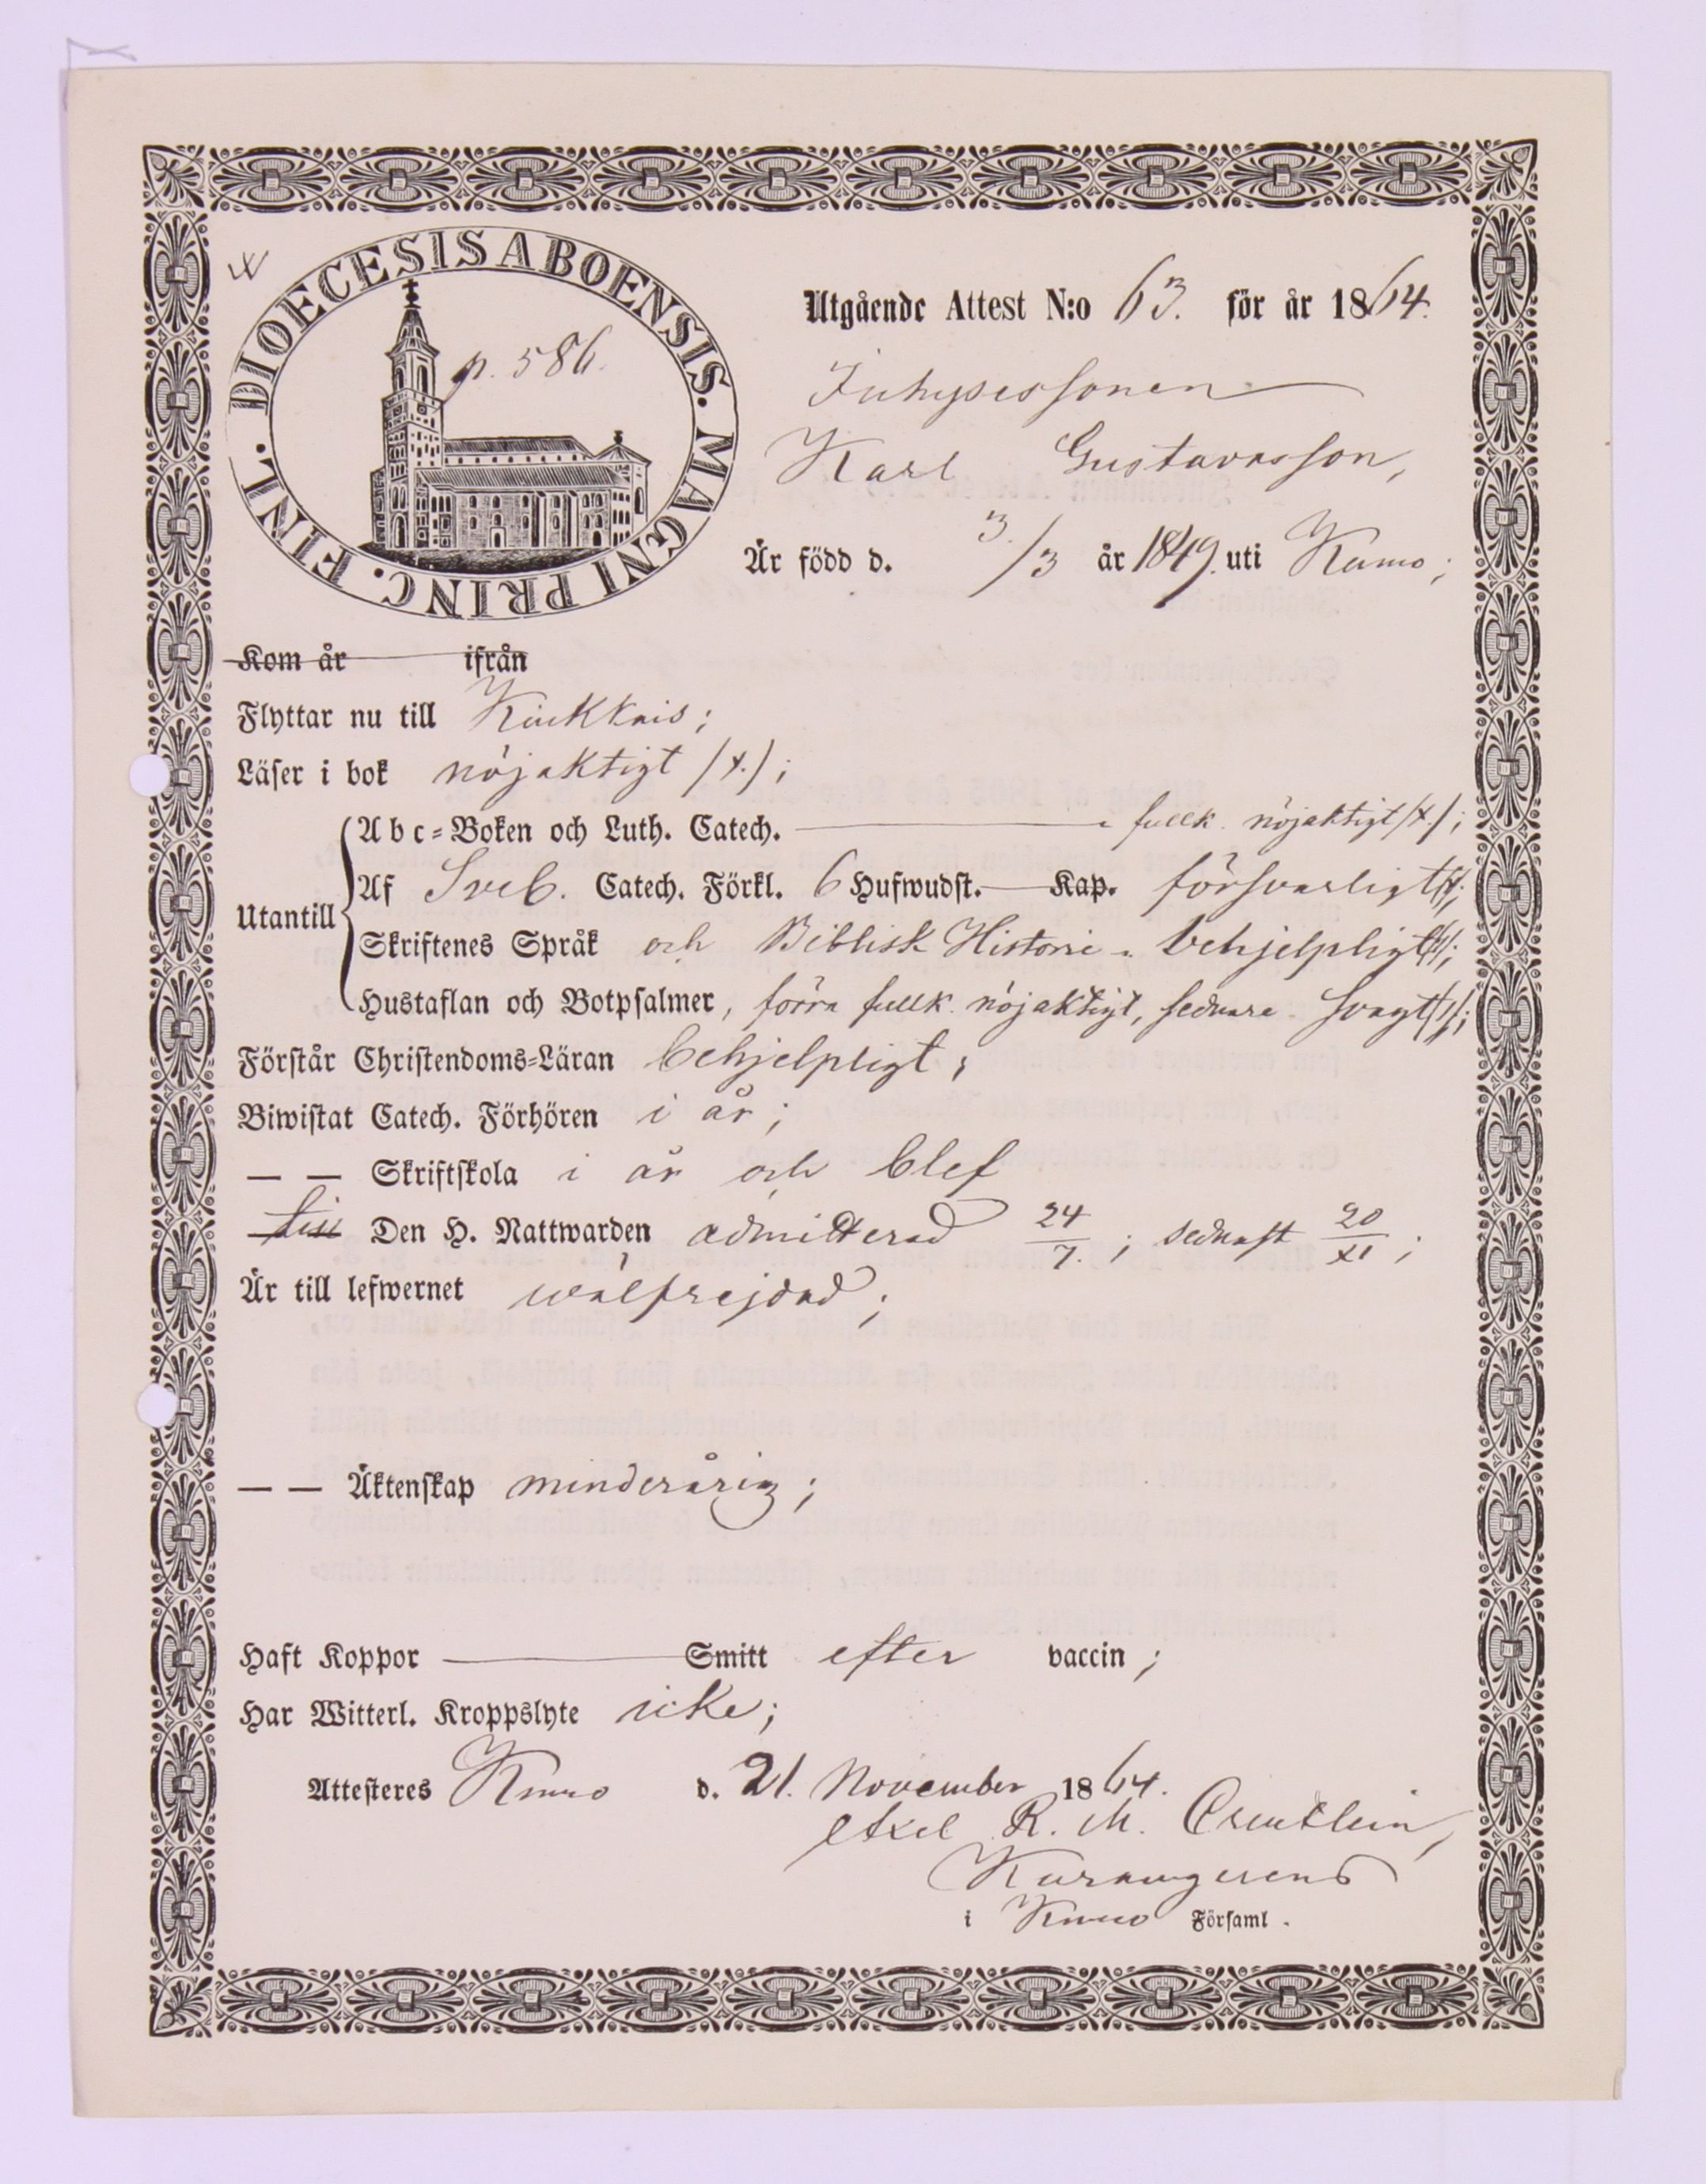 DIOECESIS ABOENSIS. MAGNI PRINC. FINL.
p. 586.
Utgående Attest N:o 63. för år 1864.
Inhysessonen
Karl Gustavsson,
Är född d. 3/3 år 1849. uti Kumo;
Kom år ifrån
Flyttar nu till Kiukkais;
Läser i bok nöjaktigt /x./;
Utantill
Abc-Boken och Luth. Catech. fullk. nöjaktigt /x./;
Af Sveb. Catech. Förkl. 6 Hufwudst. Kap. försvarligt
Skriftenes Språk och Biblisk Historie behjelpligt
Hustaflan och Botpsalmer, förra fullk. nöjaktigt, sednare svagt
Förstår Christendoms-Läran behjelpligt;
Biwistat Catech. Förhören i år;
— — Skriftskola i år och blef
till Den H. Nattwarden admitterad 24/7.; sednast 20/XI;
Är till lefwernet wälfrejdad;
— — Äktenskap minderårig;
Haft Koppor Smitt efter vaccin;
Har Witterl. Kroppslyte icke;
Attesteres Kumo d. 21. November 1864.
Axel R. M.
i Kumo Församl.